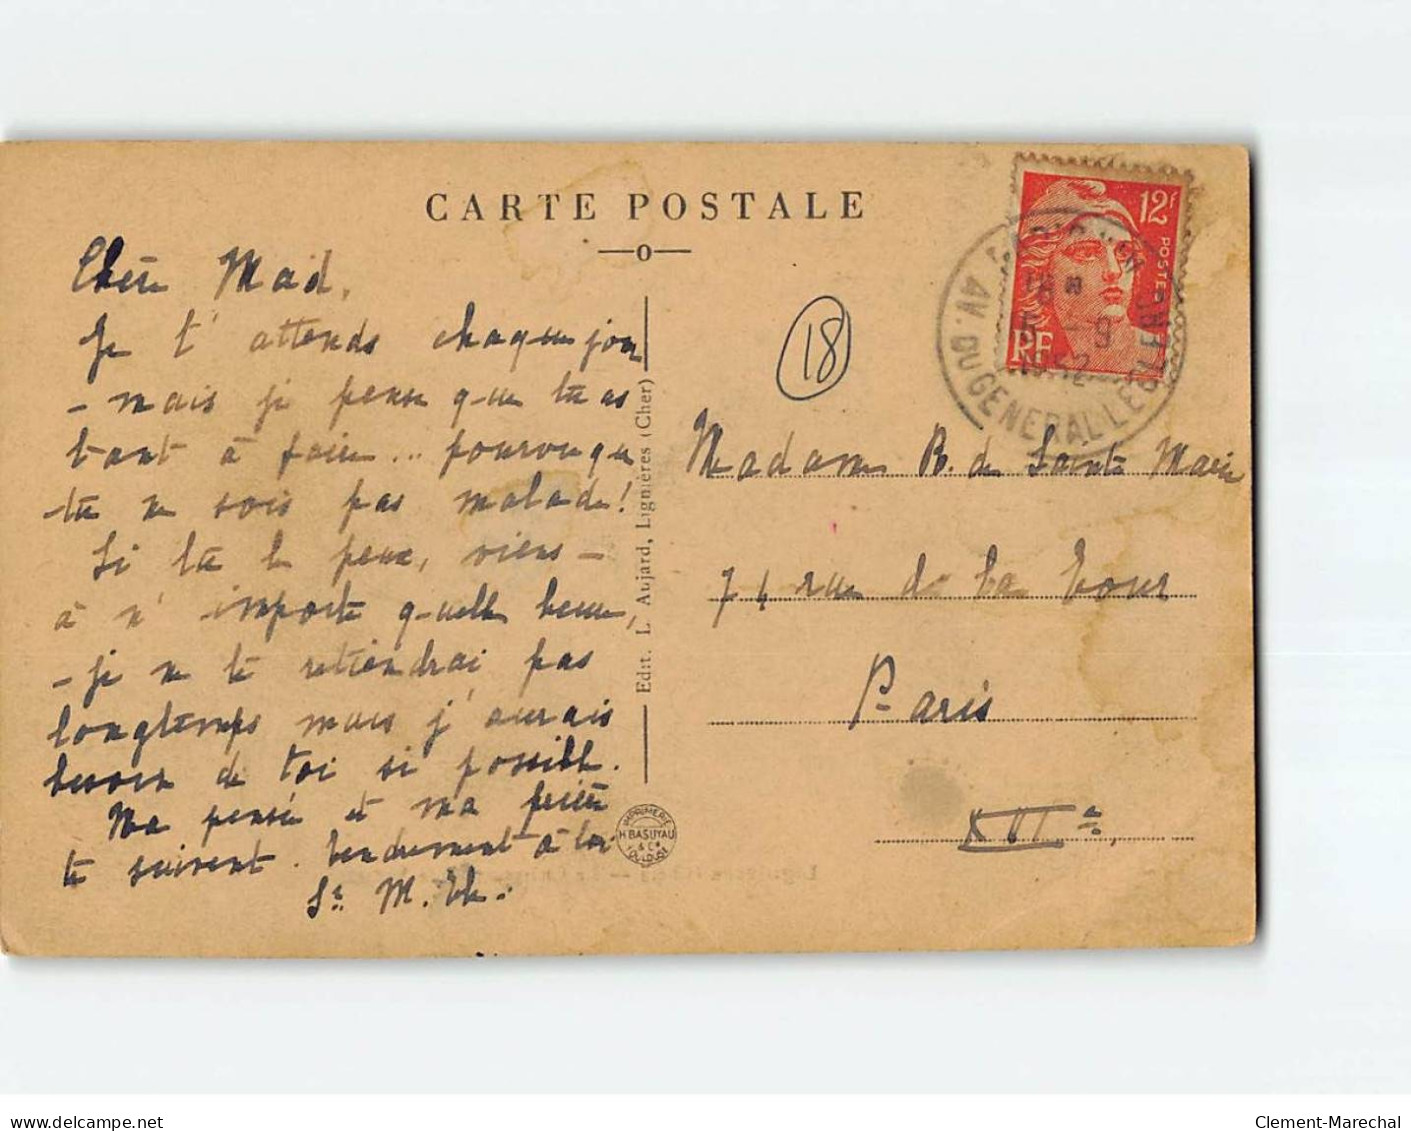 CARTE POSTALE
Chère Mad,
Je t'attends chaque jour
- mais je pense que tu as
tant à faire... pourvu que
tu ne sois pas malade!
Si tu le peux, viens -
à n'importe quelle heure,
- je ne te retiendrai pas
longtemps mais j'aurais
besoin de toi si possible.
Ma pensée et ma prière
te suivent. Tendrement à toi
Sr M. Th.
Edit. L. Aujard, Lignières (Cher)
IMPRIMERIE
H. BASUYAU
& Cie
TOULOUSE
18
12F
POSTES
RF
18H
5 - 9
1952
AV. DU GENERAL LECLERC
Madame B. de Sainte Marie
74 rue de la Tour
Paris
XVIe
delcampe.net
Clement-Marechal